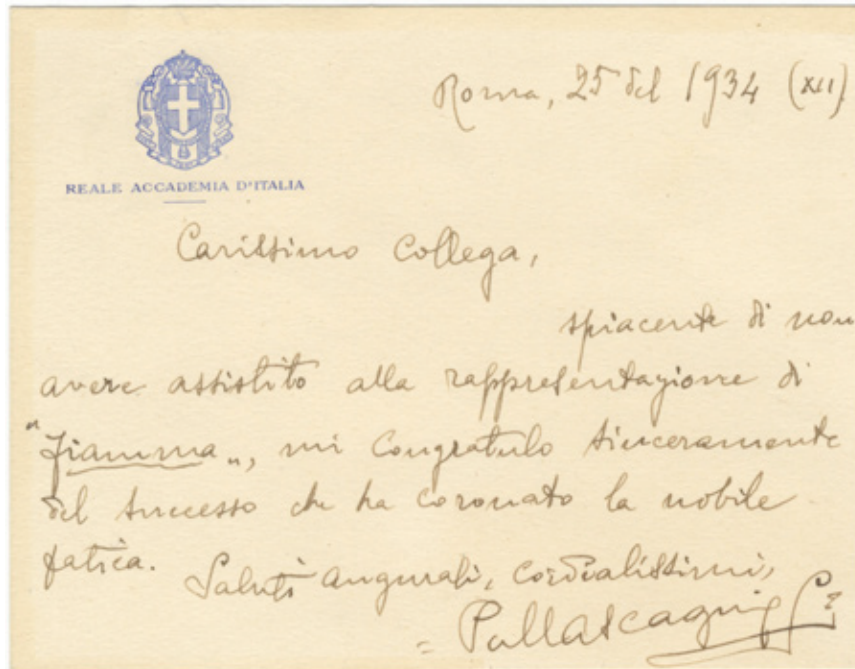 Roma, 25 del 1934 (XII)
REALE ACCADEMIA D'ITALIA
Carissimo Collega,
spiacente di non
avere assistito alla rappresentazione di
"Fiamma", mi congratulo sinceramente
del successo che ha coronato la nobile
fatica.
Saluti augurali, cordialissimi,